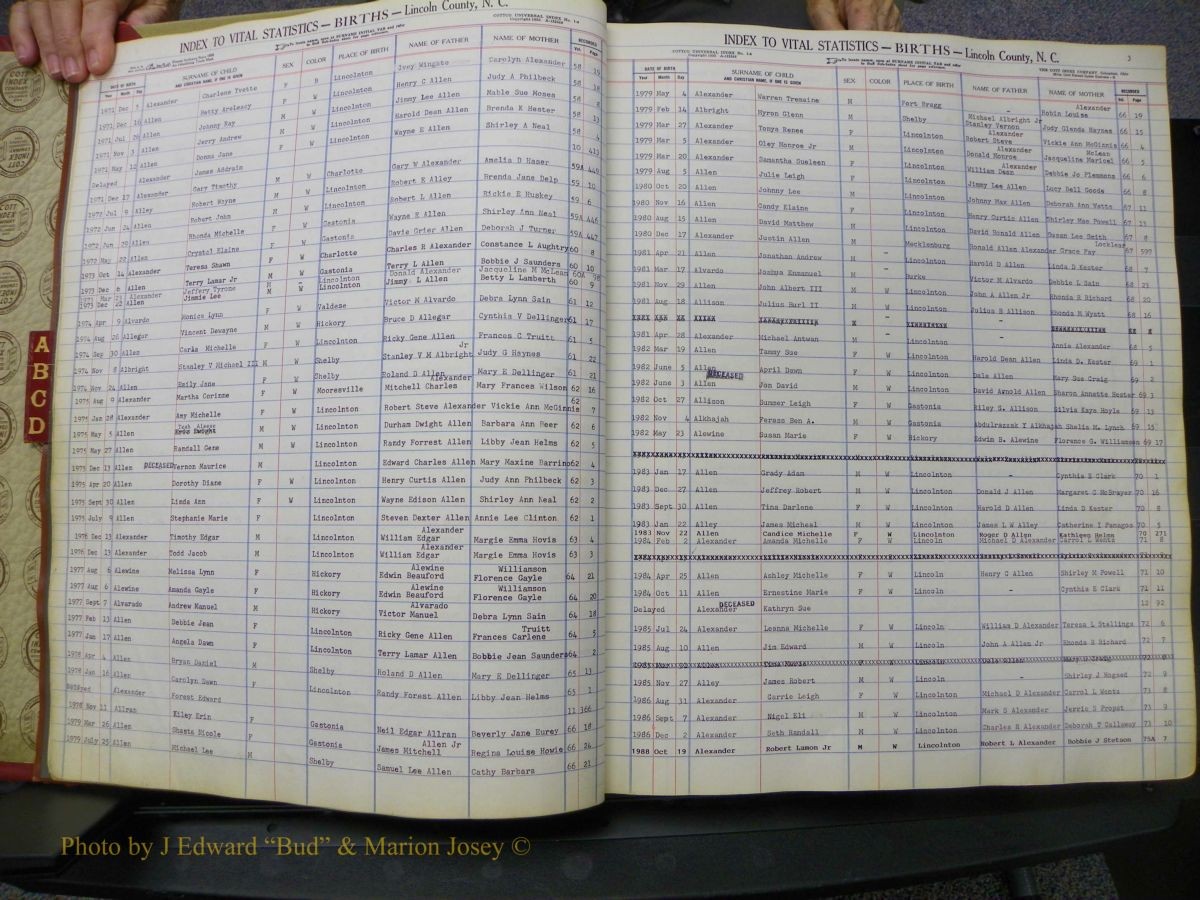 INDEX TO VITAL STATISTICS — BIRTHS — Lincoln County, N. C.
COTT UNIVERSAL INDEX No. 1A
DATE OF BIRTH
SURNAME OF CHILD
AND CHRISTIAN NAME, IF ONE IS GIVEN
SEX
COLOR
PLACE OF BIRTH
NAME OF FATHER
NAME OF MOTHER
RECORDED
Year Month Day
Vol. Page
1971 Dec Alexander Charlene Yvette F B Lincolnton Joey Wingate Carolyn Alexander 58 15
1971 Dec 16 Allen Betty Henry C Allen Judy A Philbeck 58
1971 Jul Allen Johnny Ray Jimmy Lee Allen Mable Sue Moses 58
1971 Nov 3 Allen Jerry Andrew Harold Dean Allen Brenda K Hester 58
1971 May 12 Allen Donna Jane Wayne E Allen Shirley A Neal
Delayed Alexander James 10 413
1971 Dec 17 Alexander Gary Timothy Charlotte Gary W Alexander Amelia D Haser 59A 449
1972 Jul 9 Alley Robert Wayne Lincolnton Robert E Alley Brenda Jane Delp 59 10
1972 Jun 24 Allen Robert John Robert L Allen Rickie E Huskey 59 6
1972 Jun 20 Allen Rhonda Michelle Gastonia Wayne E Allen Shirley Ann Neal 59A 446
1972 May 22 Allen Crystal Elaine Gastonia Davie Grier Allen Deborah J Turner 59A 447
1973 Oct 14 Alexander Teresa Shawn Charlotte Charles R Alexander Constance L Aughtry 60 8
1973 Dec 6 Allen Terry Lamar Jr Gastonia Terry L Allen Bobbie J Saunders 60 10
1973 Mar 21 Alexander Jeffery Tyrone M - Lincolnton Donald Alexander Jacqueline M McLean 60A 98
1973 Dec 22 Allen Jimmie Lee M W Lincolnton Jimmy. L Allen Betty L Lamberth 60 9
1974 Apr 9 Alvardo Monica Lynn F W Valdese Victor M Alvardo Debra Lynn Sain 61 12
1974 Aug 26 Allegar Vincent Dewayne M W Hickory Bruce D Allegar Cynthia V Dellinger 61 17
1974 Sep 30 Allen Carla Michelle F W Lincolnton Ricky Gene Allen Frances C Truitt 61 5
1974 Nov 8 Albright Stanley V Michael III M W Shelby Stanley V M Albright Jr Judy G Haynes 61 22
1974 Nov 24 Allen Emily Jane F W Shelby Roland D Allen Mary E Dellinger 61 21
1975 Aug 9 Alexander Martha Corinne F W Mooresville Mitchell Charles Alexander Mary Frances Wilson 62 16
1975 Jan 28 Alexander Amy Michelle F W Lincolnton Robert Steve Alexander Vickie Ann McGinnis 62 7
1975 May 5 Allen M W Lincolnton Durham Dwight Allen Barbara Ann Beer 62 6
1975 May 27 Allen Randall Gene M W Lincolnton Randy Forrest Allen Libby Jean Helms 62 5
1975 Dec 13 Allen DECEASED Vernon Maurice M Lincolnton Edward Charles Allen Mary Maxine Barrino 62 4
1975 Apr 20 Allen Dorothy Diane F W Lincolnton Henry Curtis Allen Judy Ann Philbeck 62 3
1975 Sept 30 Allen Linda Ann F W Lincolnton Wayne Edison Allen Shirley Ann Neal 62 2
1975 July 9 Allen Stephanie Marie F Lincolnton Steven Dexter Allen Annie Lee Clinton 62 1
1976 Dec 13 Alexander Timothy Edgar M Lincolnton William Edgar Alexander Margie Emma Hovis 63 4
1976 Dec 13 Alexander Todd Jacob M Lincolnton William Edgar Alexander Margie Emma Hovis 63 3
1977 Aug 6 Alewine Melissa Lynn F Hickory Edwin Beauford Alewine Florence Gayle Williamson 64 21
1977 Aug 6 Alewine Amanda Gayle F Hickory Edwin Beauford Alewine Florence Gayle Williamson 64 20
1977 Sept 7 Alvarado Andrew Manuel M Hickory Victor Manuel Alvarado Debra Lynn Sain 64 18
1977 Feb 13 Allen Debbie Jean F Lincolnton Ricky Gene Allen Frances Carlene Truitt 64 5
1977 Jan 17 Allen Angela Dawn F Lincolnton Terry Lamar Allen Bobbie Jean Saunders 64 2
1978 Apr 4 Allen Bryan Daniel M Shelby Roland D Allen Mary E Dellinger 65 13
1978 Jan 16 Allen Carolyn Dawn F Lincolnton Randy Forest Allen Libby Jean Helms 65 1
Delayed Alexander Forest Edward 11 166
1978 Nov 11 Allran Kiley Erin F Gastonia Neil Edgar Allran Beverly Jane Eurey 66 18
1979 Mar 26 Allen Shasta Nicole F Gastonia James Mitchell Allen Jr Regina Louise Howie 66 24
1979 July 25 Allen Michael Lee M Shelby Samuel Lee Allen Cathy Barbara 66 21
INDEX TO VITAL STATISTICS — BIRTHS — Lincoln County, N. C.
3
COTT UNIVERSAL INDEX No. 1A
THE COTT INDEX COMPANY, Columbus, Ohio
DATE OF BIRTH
SURNAME OF CHILD
AND CHRISTIAN NAME, IF ONE IS GIVEN
SEX
COLOR
PLACE OF BIRTH
NAME OF FATHER
NAME OF MOTHER
RECORDED
Year Month Day
Vol. Page
1979 May 4 Alexander Warren Tremaine M Fort Bragg - Robin Louise Alexander 66 19
1979 Feb 14 Albright Myron Glenn M Shelby Michael Albright Jr Stanley Vernon Judy Glenda Haynes 66 15
1979 Mar 27 Alexander Tonya Renee F Lincolnton Robert Steve Alexander Vickie Ann McGinnis 66 4
1979 Mar 5 Alexander Oley Monroe Jr M Lincolnton Donald Monroe Alexander Jacqueline Maricel McLean 66 5
1979 Mar 20 Alexander Samantha Sueleen F Lincolnton William Dean Alexander Debbie Jo Plemmons 66 6
1979 Aug 5 Allen Julie Leigh F Lincolnton Jimmy Lee Allen Lucy Bell Goode 66 8
1980 Oct 20 Allen Johnny Lee M Lincolnton Johnny Max Allen Deborah Ann Watts 67 11
1980 Nov 16 Allen Candy Elaine F Lincolnton Henry Curtis Allen Shirley Mae Powell 67 13
1980 Aug 15 Allen David Matthew M Lincolnton David Ronald Allen Susan Lee Smith 67 8
1980 Dec 17 Alexander Justin Allen M Mecklenburg Ronald Allen Alexander Grace Fay Locklear 67 597
1981 Apr 21 Allen Jonathan Andrew M - Lincolnton Harold D Allen Linda D Kester 68 7
1981 Mar 17 Alvardo Joshua Enmanuel M - Burke Victor M Alvardo Debbie L Sain 68 21
1981 Nov 29 Allen John Albert III M W Lincolnton John A Allen Jr Rhonda R Richard 68 20
1981 Aug 18 Allison Julius Burl II M - Lincolnton Julius B Allison Rhonda M Wyatt 68 16
1981 Apr 28 Alexander Michael Antwan M - Lincolnton Annie Alexander 68 5
1982 Mar 19 Allen Tammy Sue F W Lincolnton Harold Dean Allen Linda D. Kester 69 1
1982 June 5 Allen DECEASED April Dawn F W Lincolnton Dale Allen Mary Sue Craig 69 2
1982 June 3 Allen Jon David M W Lincolnton David Arnold Allen Sharon Annette Hester 69 3
1982 Oct 27 Allison Sumner Leigh F W Gastonia Riley S. Allison Silvia Kaye Hoyle 69 13
1982 Nov 4 Alkhajah Ferass Ben A. M W Gastonia Abdulrazzak Y Alkhajah Shelia M. Lynch 69 15
1982 May 23 Alewine Susan Marie F W Hickory Edwin B. Alewine Florence G. Williamson 69 17
1983 Jan 17 Allen Grady Adam M W Lincolnton - Cynthia E Clark 70 1
1983 Dec 27 Allen Jeffrey Robert M W Lincolnton Donald J Allen Margaret C McBrayer 70 16
1983 Sept 30 Allen Tina Darlene F W Lincolnton Harold D Allen Linda D Kester 70 8
1983 Jan 22 Alley James Micheal M W Lincolnton James L W Alley Catherine I Panagos 70 5
1983 Nov 22 Allen Candice Michelle F W Lincolnton Roger D Allen Kathleen Helms 70 271
1984 Feb 2 Alexander Amanda Michelle F W Lincoln Michael D Alexander Carrol L Weeks 71 8
1984 Apr 25 Allen Ashley Michelle F W Lincoln Henry C Allen Shirley M Powell 71 10
1984 Oct 11 Allen Ernestine Marie F W Lincoln - Cynthia E Clark 71 11
Delayed Alexander DECEASED Kathryn Sue 12 92
1985 Jul 24 Alexander Leanna Michelle F W Lincoln William D Alexander Teresa L Stallings 72 6
1985 Aug 10 Allen Jim Edward M W Lincoln John A Allen Jr Rhonda R Richard 72 7
1985 Nov 27 Alley James Robert M W Lincoln - Shirley J Hogsed 72 9
1986 Aug 31 Alexander Carrie Leigh F W Lincolnton Michael D Alexander Carrol L Wentz 73 8
1986 Sept 7 Alexander Nigel Eli M W Lincoln Mark S Alexander Jerrie S Propst 73 9
1986 Dec 2 Alexander Seth Randall M W Lincoln Charles R Alexander Deborah T Callaway 73 10
1988 Oct 19 Alexander Robert Lamon Jr M W Lincolnton Robert L Alexander Bobbie J Stetson 75A 7
A
B
C
D
Photo by J Edward “Bud” & Marion Josey ©